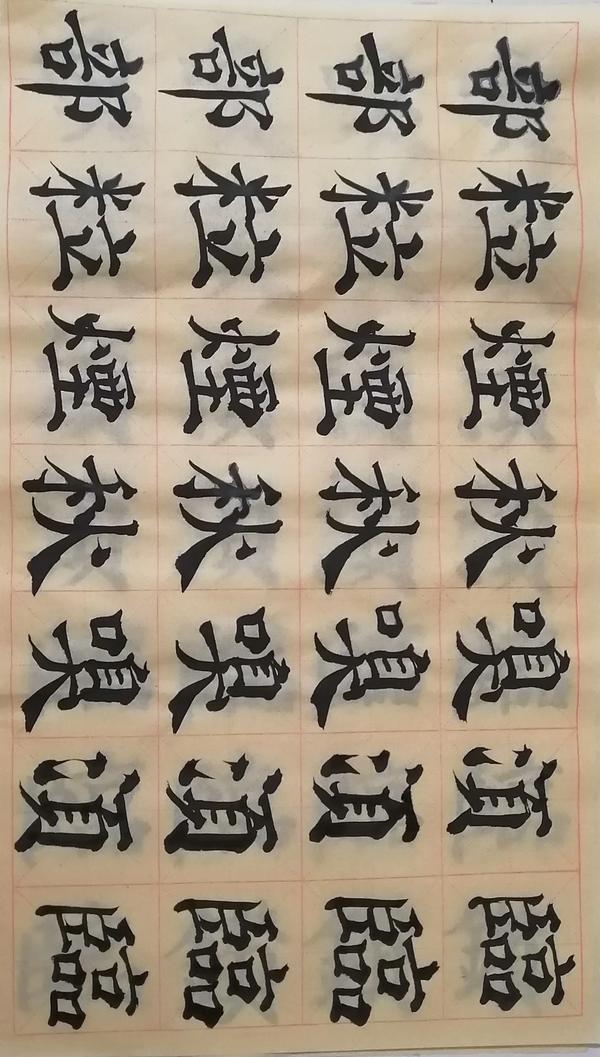 臨臨臨臨
湏湏湏湏
嗅嗅嗅嗅
秋秋秋秋
煙煙煙煙
粒粒粒粒
部部部部